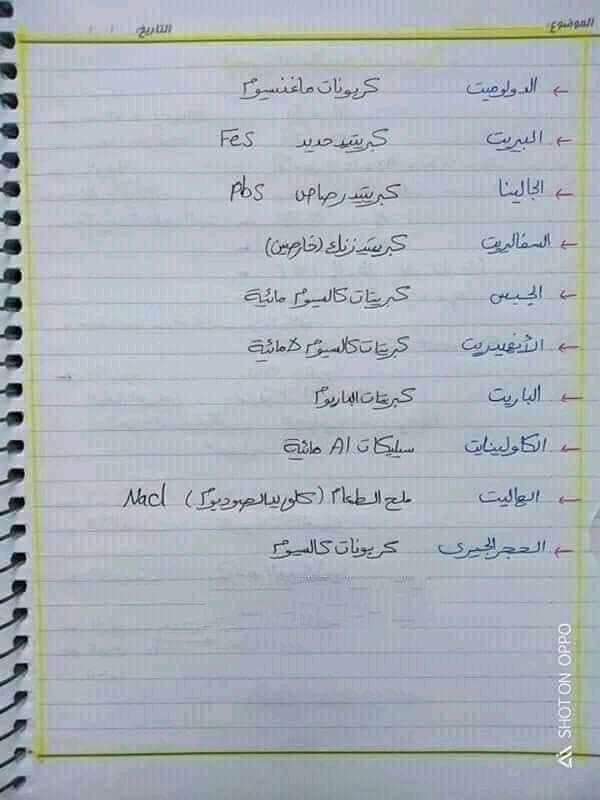 الموضوع: التاريخ: / /
← الدولوميت كربونات ماغنسيوم
← البيريت كبريتيد حديد FeS
← الجالينا كبريتيد رصاص PbS
← السفاليريت كبريتيد زنك (خارصين)
← الجبس كبريتات كالسيوم مائية
← الأنهيدريت كبريتات كالسيوم لامائية
← الباريت كبريتات الباريوم
← الكاولينايت سيليكات Al مائية
← الهاليت ملح الطعام (كلوريد الصوديوم) Nacl
← الحجر الجيرى كربونات كالسيوم
SHOT ON OPPO